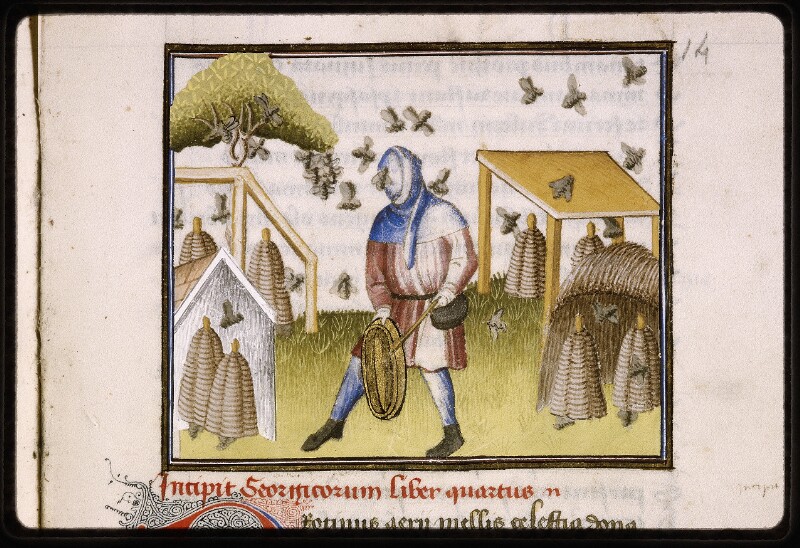 14
Incipit Georgicorum liber quartus
Rotinus aery mellis celestia dona